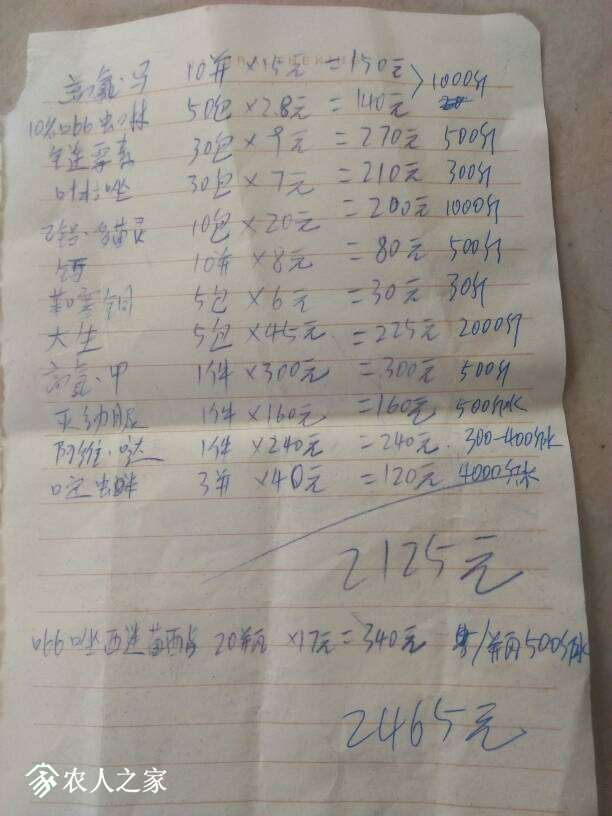 高氯·马 10并×15元=150元 1000斤
10%吡虫啉 50包×2.8元=140元
30包×9元=270元 500斤
叶枯唑 30包×7元=210元 300斤
10包×20元=200元 1000斤
钙 10并×8元=80元 500斤
5包×6元=30元 30斤
大生 5包×45元=225元 2000斤
高氯·甲 1件×300元=300元 500斤
灭幼脲 1件×160元=160元 500分水
阿维·哒 1件×240元=240元 300-400分水
啶虫脒 3并×40元=120元 4000分水
2125元
20瓶×17元=340元 /瓶500分水
2465元
农人之家